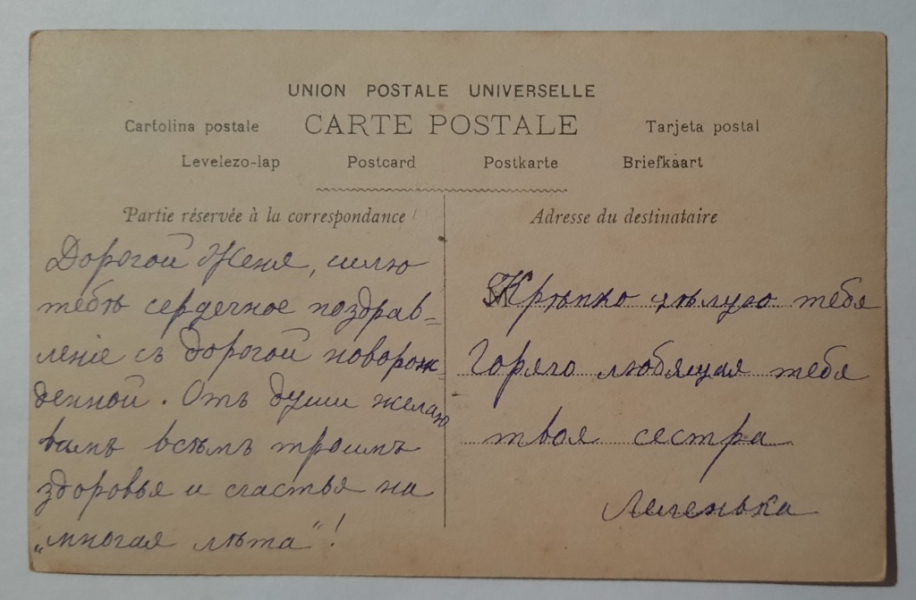 UNION POSTALE UNIVERSELLE
Cartolina postale CARTE POSTALE Tarjeta postal
Levelezo-lap Postcard Postkarte Briefkaart
Partie réservée à la correspondance
Дорогой Женя, силю
тебѣ сердечное поздрав=
леніе съ дорогой новорож=
денной. Отъ души желаю
вамъ всѣмъ троимъ
здоровья и счастья на
„многая лѣта"!
Adresse du destinataire
Крѣпко цѣлую тебя
Горячо любящая тебя
твоя сестра